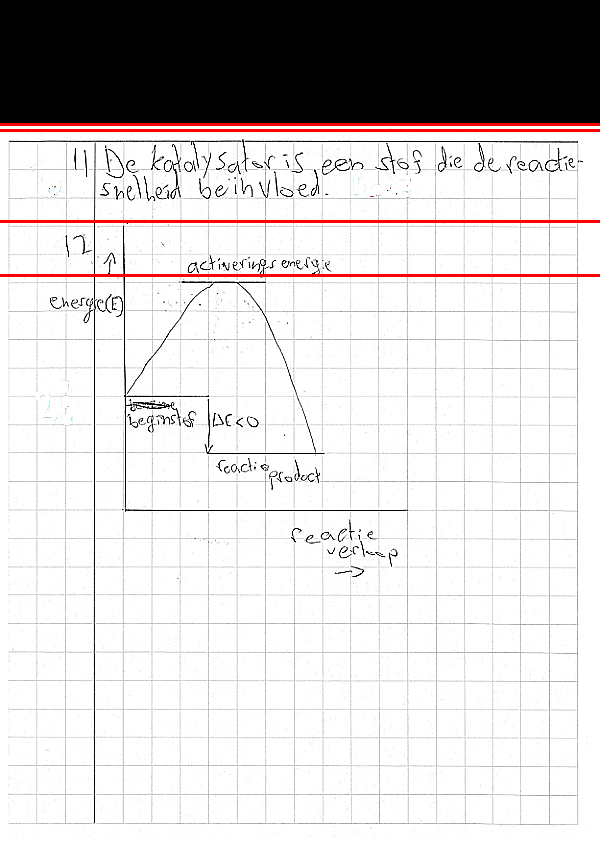 11 De katalysator is een stof die de reactie-
snelheid beïnvloed.
12
↑
activerings energie
energie(E)
beginstof
ΔE<0
reactie
product
reactie
verloop
→